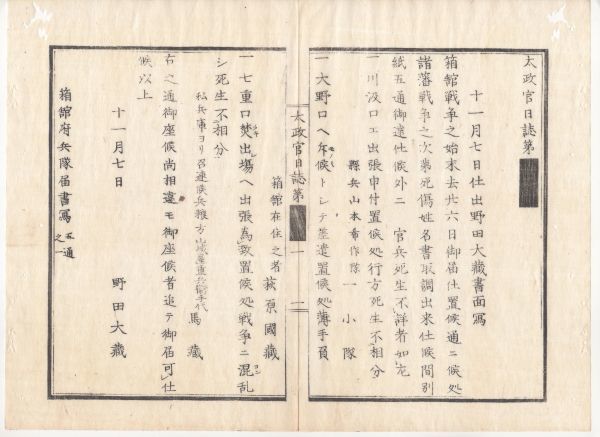 太政官日誌第
十一月七日仕出野田大藏書面寫
箱館戦争之始末去廾六日御届仕置候通ニ候処
諸藩戦争之次第死傷姓名書取調出来仕候間別
紙五通御達仕候外ニ 官兵死生不詳者如左
一川汲口エ出張申付置候処行方死生不相分
縣兵山本章作隊 一小隊
一大野口ヘ斥候トシテ差遣置候処薄手負
太政官日誌第 一 二
箱館在住之者 萩原國藏
一七重口焚出場ヘ出張為致置候処戦争ニ混乱
シ死生不相分
馬藏
右之通御座候尚相違モ御座候者追テ御届可仕
候以上
十一月七日 野田大藏
箱館府兵隊届書寫 五通之一